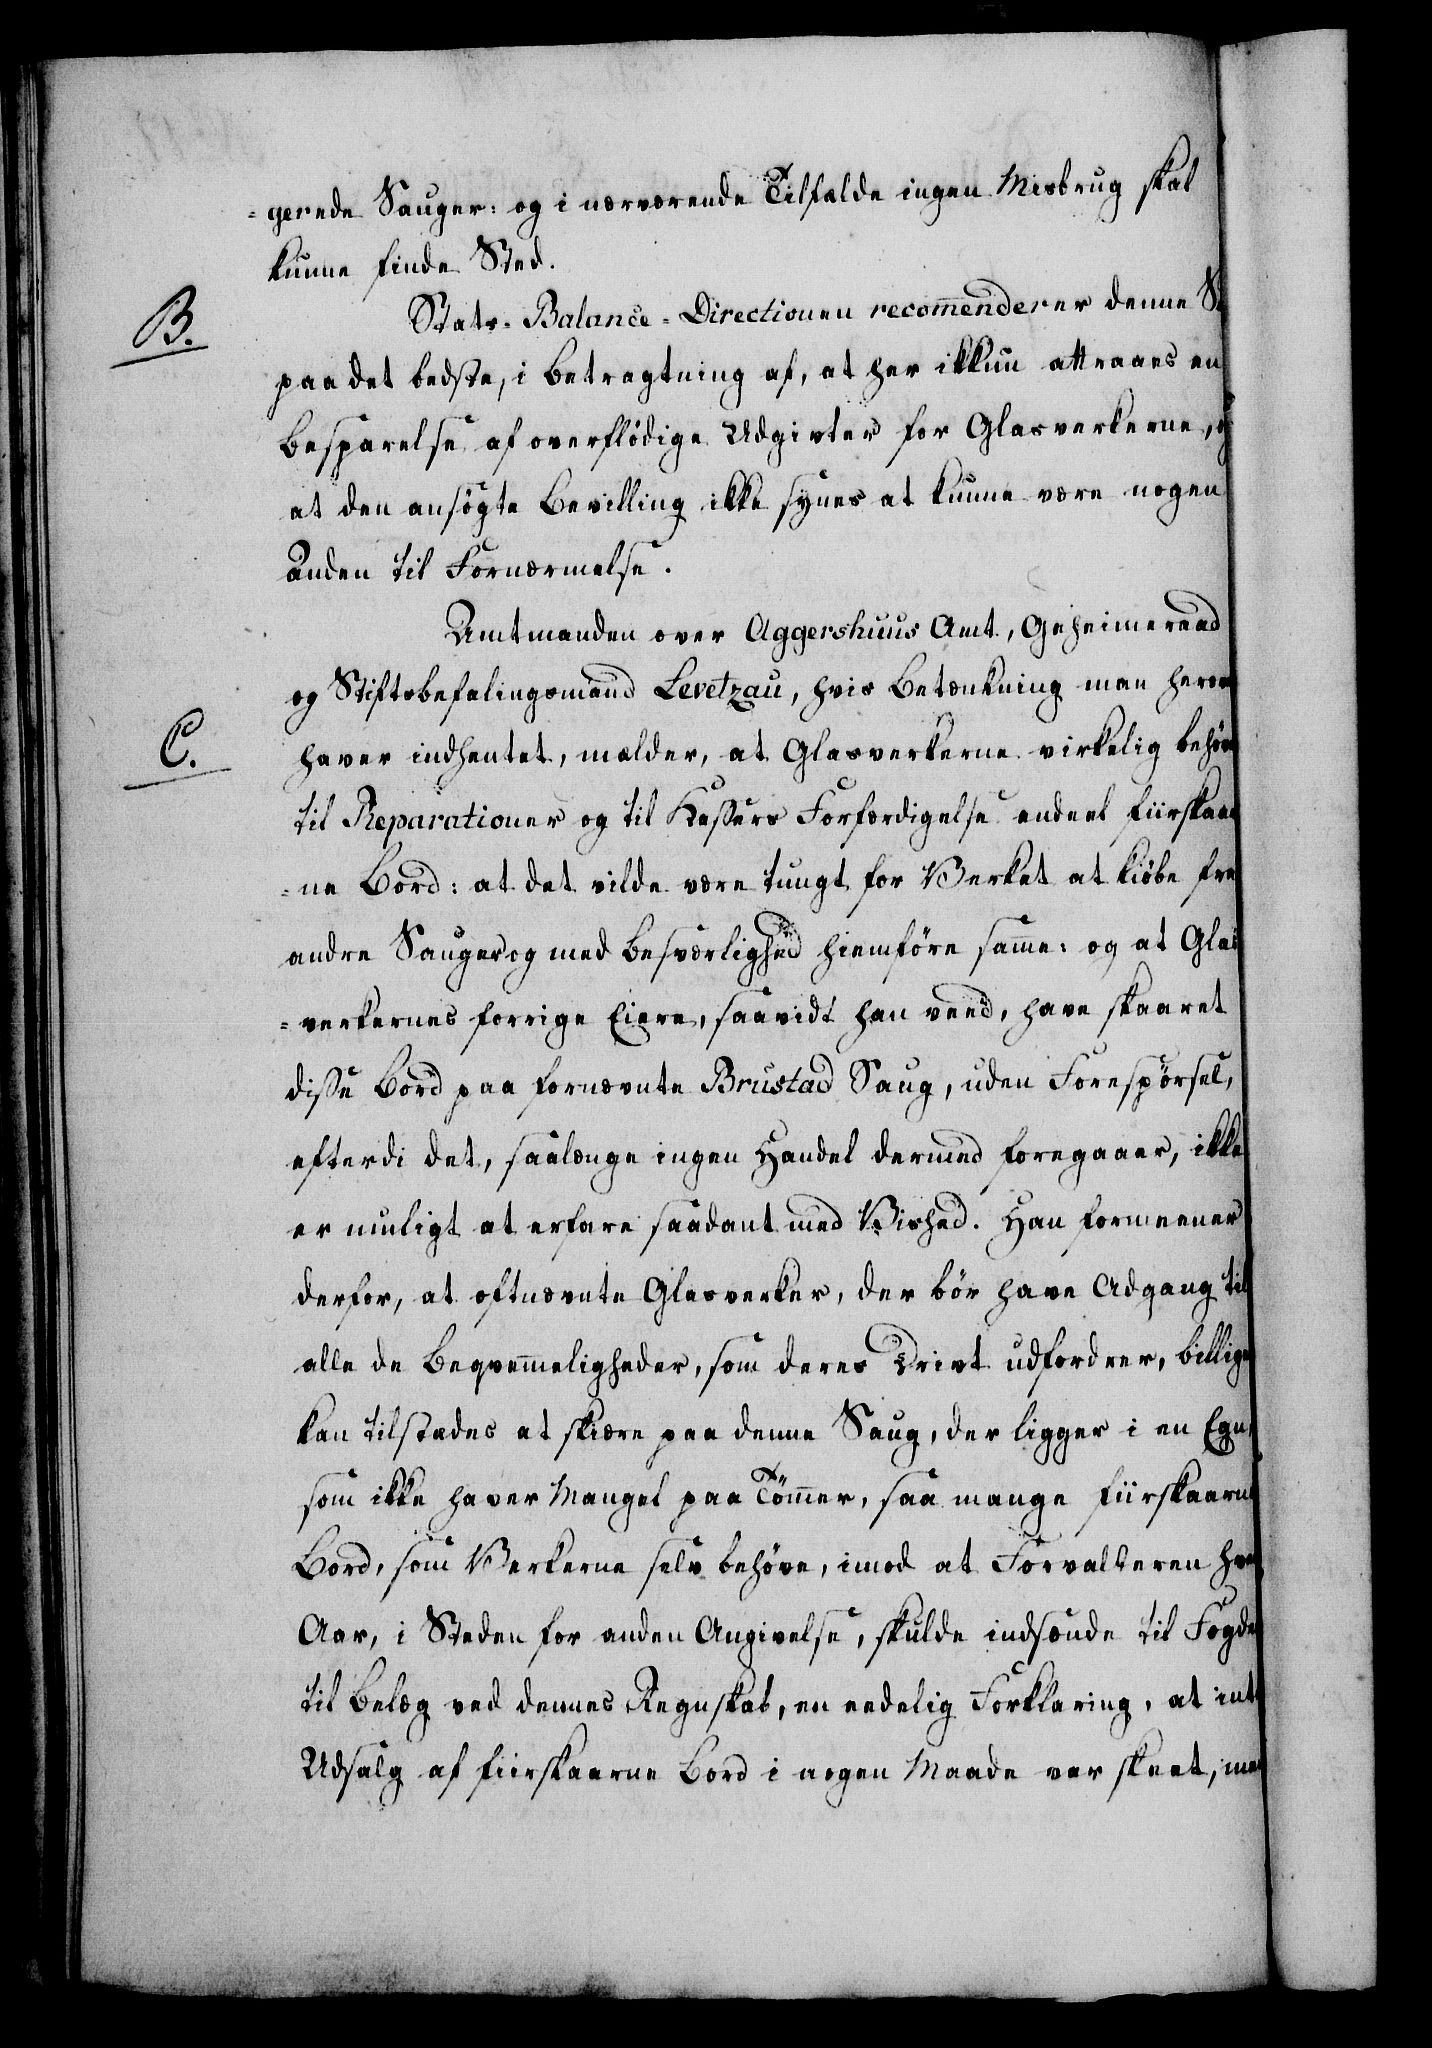 =gerede Sauger: og i nærværende Tilfælde ingen Misbrug skal
kunne finde Sted.
B.
Stats-Balance-Directionen recom̅enderer denne
paa det bedste, i Betragtning af, at her ikkun attraaes en
Besparelse af overflødige Udgivter for Glasverkerne,
at den ansøgte Bevilling ikke synes at kunne være nogen
Anden til Fornærmelse.
Amtmanden over Aggershuus Amt, Geheimeraad
og Stiftsbefalingsmand Levetzau, hvis Betænkning man herov
C.
haver indhentet, melder, at Glasverkerne virkelig behøv
til Reparationer og til Kassers Forfærdigelse endeel fiirskaar
=ne Bord: at det vilde være tungt for Verket at kiøbe fra
andre Sauger og med Besværlighed hiemføre sam̅e: og at Glas
=verkernes forrige Eiere, saavidt han veed, have skaaret
disse Bord paa fornævnte Brustad Saug, uden Forespørsel,
efterdi det, saalænge ingen Handel dermed foregaaer, ikke
er muligt at erfare saadant med Vished. Han formeener
derfor, at oftnævnte Glasverker, der bør have Adgang til
alle de Beqvem̅eligheder, som deres Drivt udfordrer, billige
kan tilstædes at skiære paa denne Saug, der ligger i en Egn,
som ikke haver Mangel paa Töm̅er, saa mange fiirskaarne
Bord, som Verkerne selv behøve, imod at Forvalteren hve
Aar, i Steden for anden Angivelse, skulde indsende til Fogde
til Belæg ved dennes Regnskab, en eedelig Forklaring, at int
Udsalg af fiirskaarne Bord i nogen Maade var skeet, me